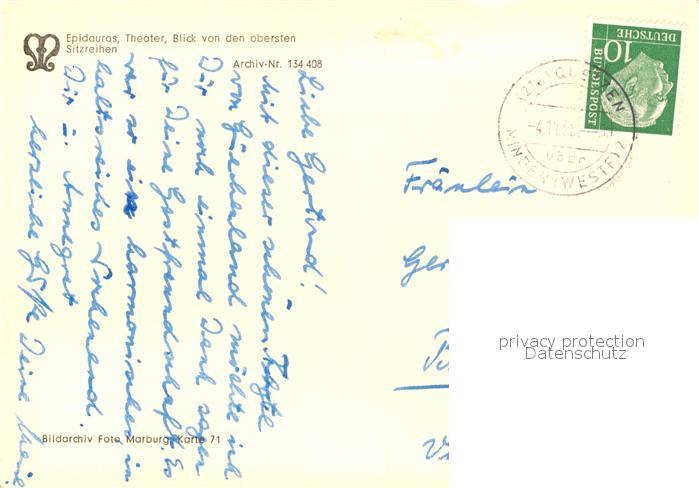 Epidauros, Theater, Blick von den obersten
Sitzreihen
Archiv-Nr. 134 408
Liebe Gertrud!
Mit dieser schönen
von Griechenland möchte ich
Dir noch einmal Dank sagen
für Deine Gastfreundschaft. Es
war so ein harmonisches, in-
haltsreiches Wochenend
Dir u. Annegret
herzliche Grüße Deine
Bildarchiv Foto Marburg, Karte 71
10
DEUTSCHE
BUNDESPOST
(21a) QUETZEN
über
MINDEN (WESTF) 2
Fräulein
Ger
privacy protection
Datenschutz